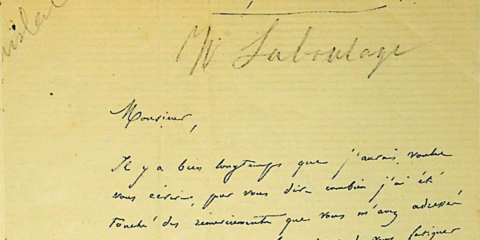 M Laboulaye
Monsieur,
Il y a bien longtemps que j'aurais voulu
vous écrire, pour vous dire combien j'ai été
touché des remerciements que vous m'avez adressés
vous fatiguer